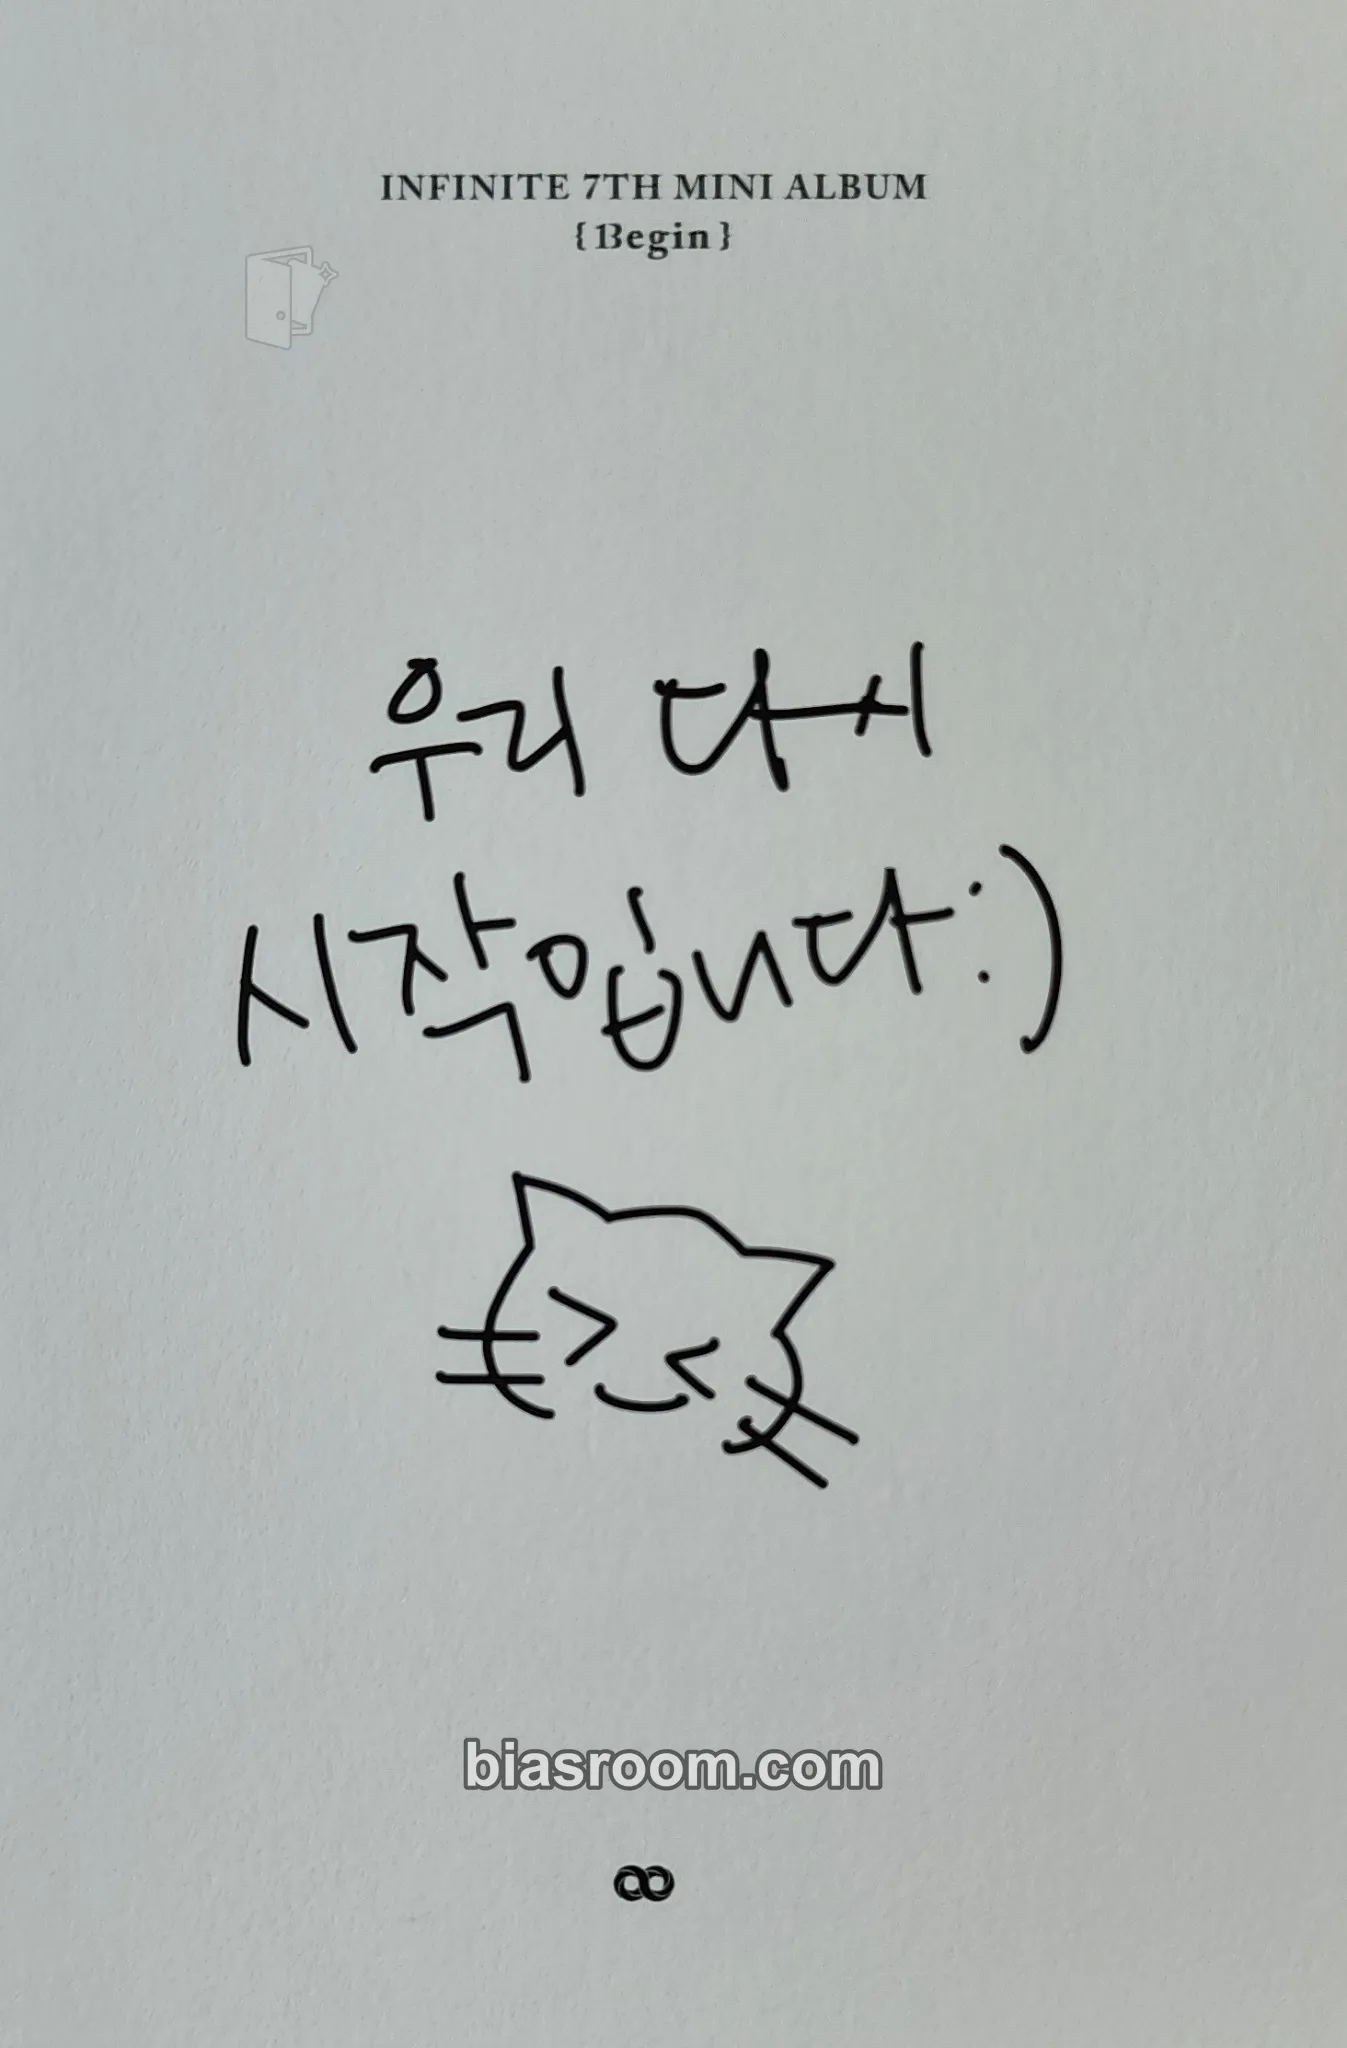 INFINITE 7TH MINI ALBUM
{13egin}
우리 다시
시작입니다:)
biasroom.com